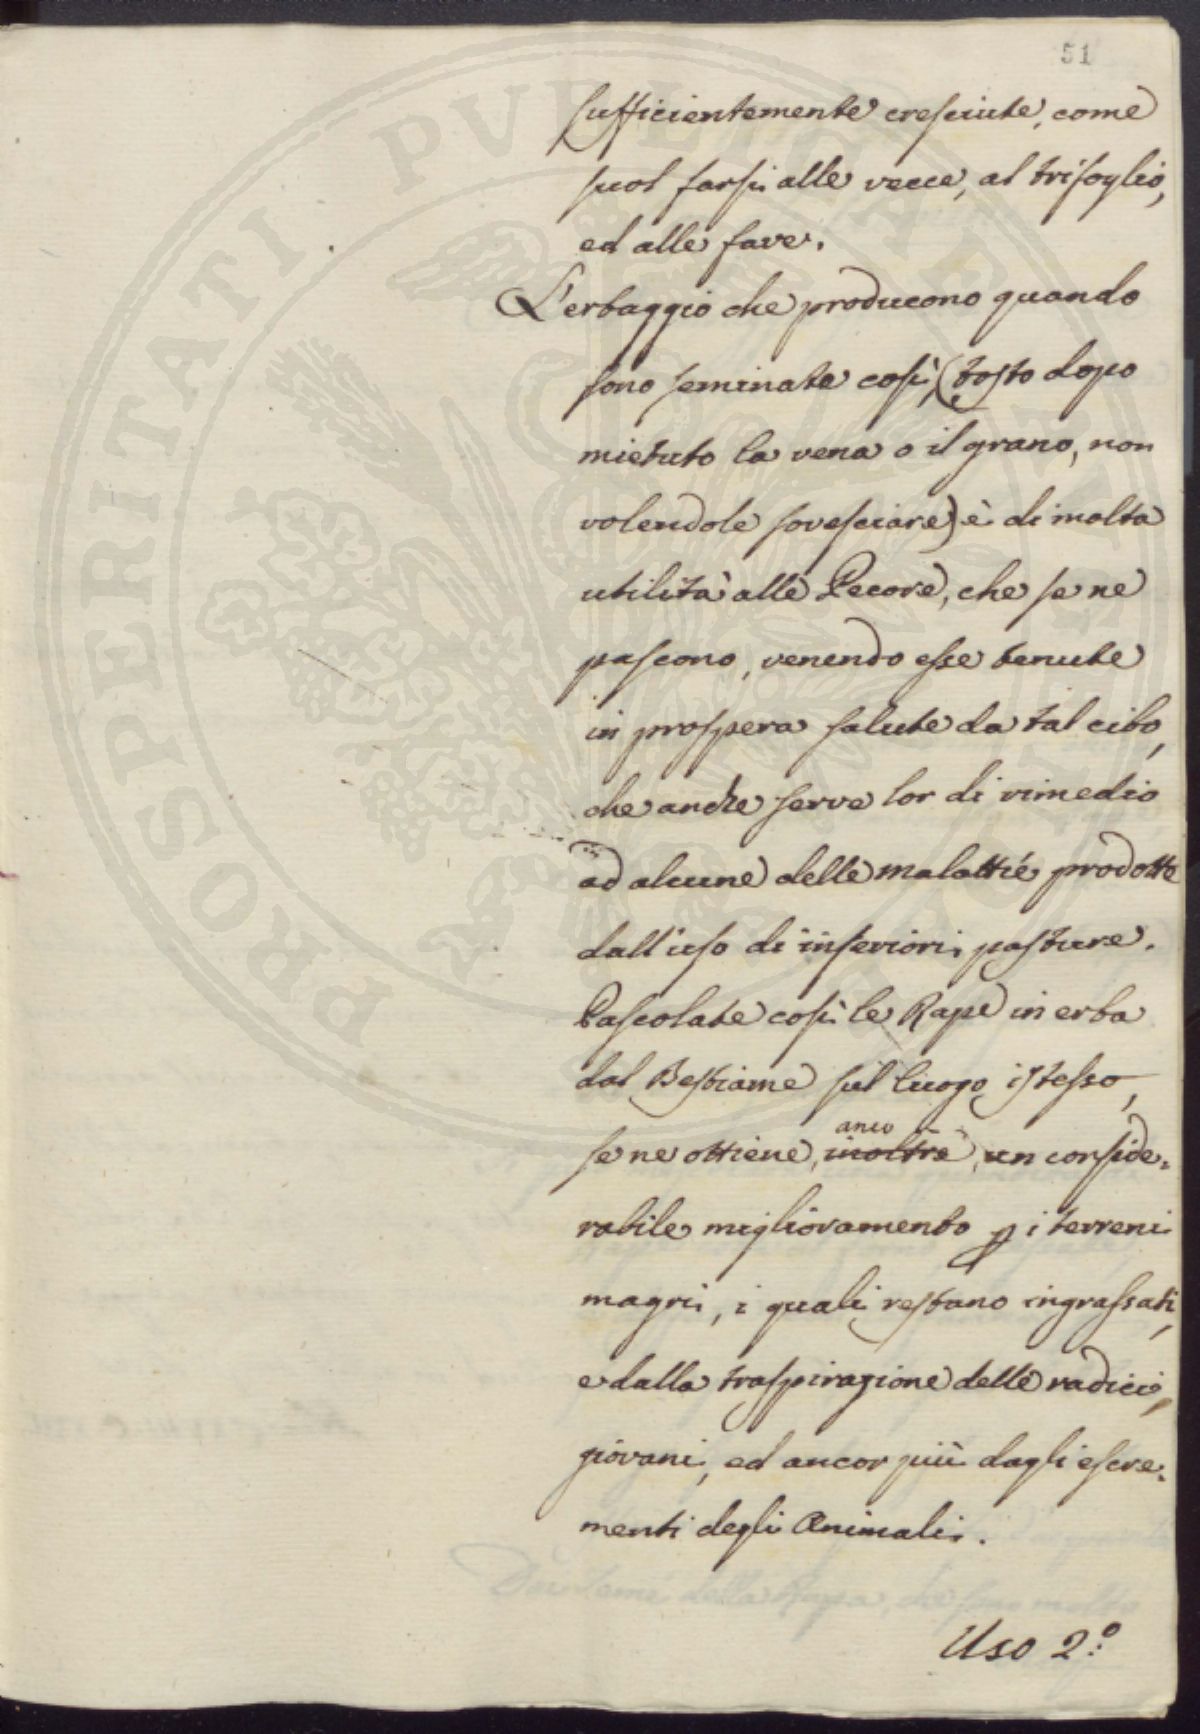 51
sufficientemente cresciute, come
suol farsi alle vecce, al trifoglio,
ed alle fave.
L'erbaggio che producono quando
sono seminate così, (tosto dopo
mietuto la vena o il grano, non
volendole sovesciare) è di molta
utilità alle Pecore, che se ne
pascono, venendo esse tenute
in prospera salute da tal cibo,
che anche serve lor di rimedio
ad alcune delle malattie prodotte
dall'uso di inferiori pasture.
Pascolate così le Rape in erba
dal Bestiame sul luogo istesso,
anco
se ne ottiene, inoltre, un conside=
rabile miglioramento p i terreni
magri, i quali restano ingrassati,
e dalla traspirazione delle radici,
giovani, ed ancor più dagli escre=
menti degli Animali.
Uso 2.º
PROSPERITATI PVBLICAE AVGENDAE